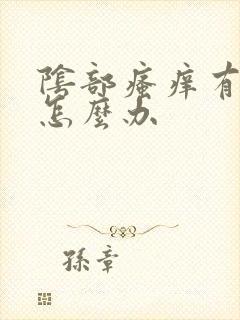 陰部瘙痒有
怎麼办
孫章